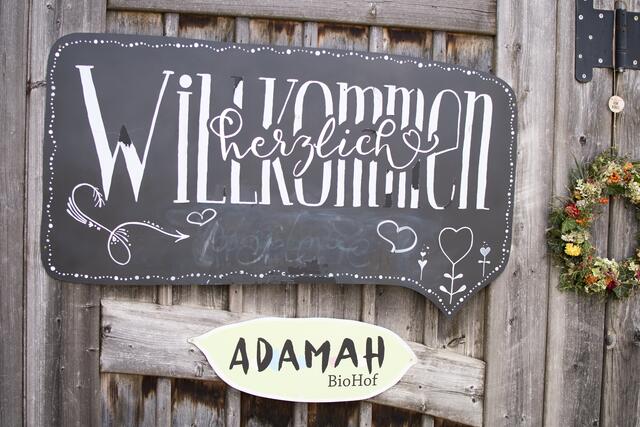 Willkommen
herzlich
ADAMAH
BioHof